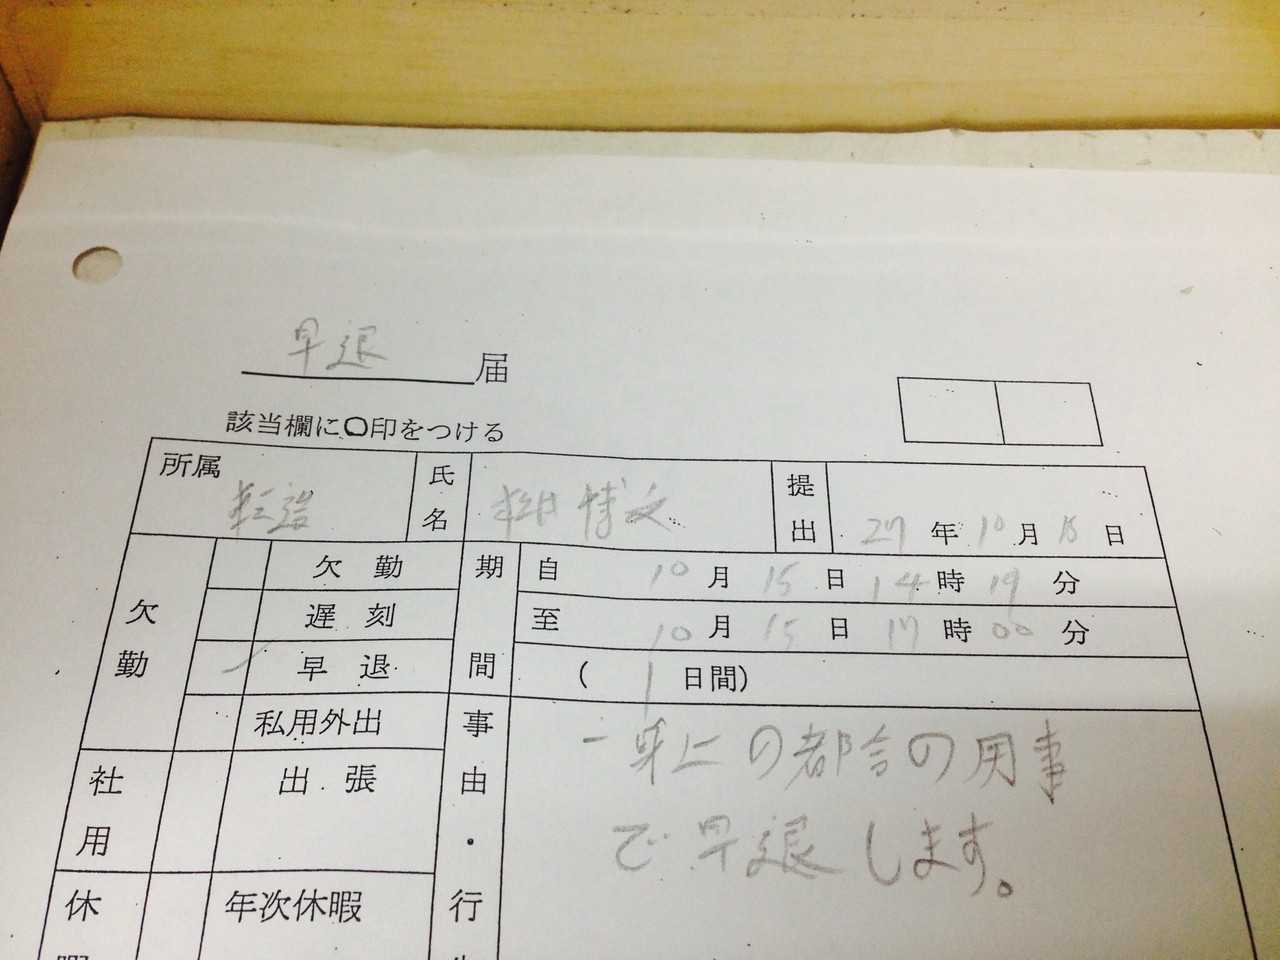 早退 届
該当欄に〇印をつける
所属 氏名 博文 提出 27年10月15日
欠勤 欠勤 期間 自 10月15日14時19分
遅刻 至 10月15日17時00分
早退 (1日間)
私用外出 事由・行 一身上の都合の用事
社用 出張 で早退します。
休 年次休暇